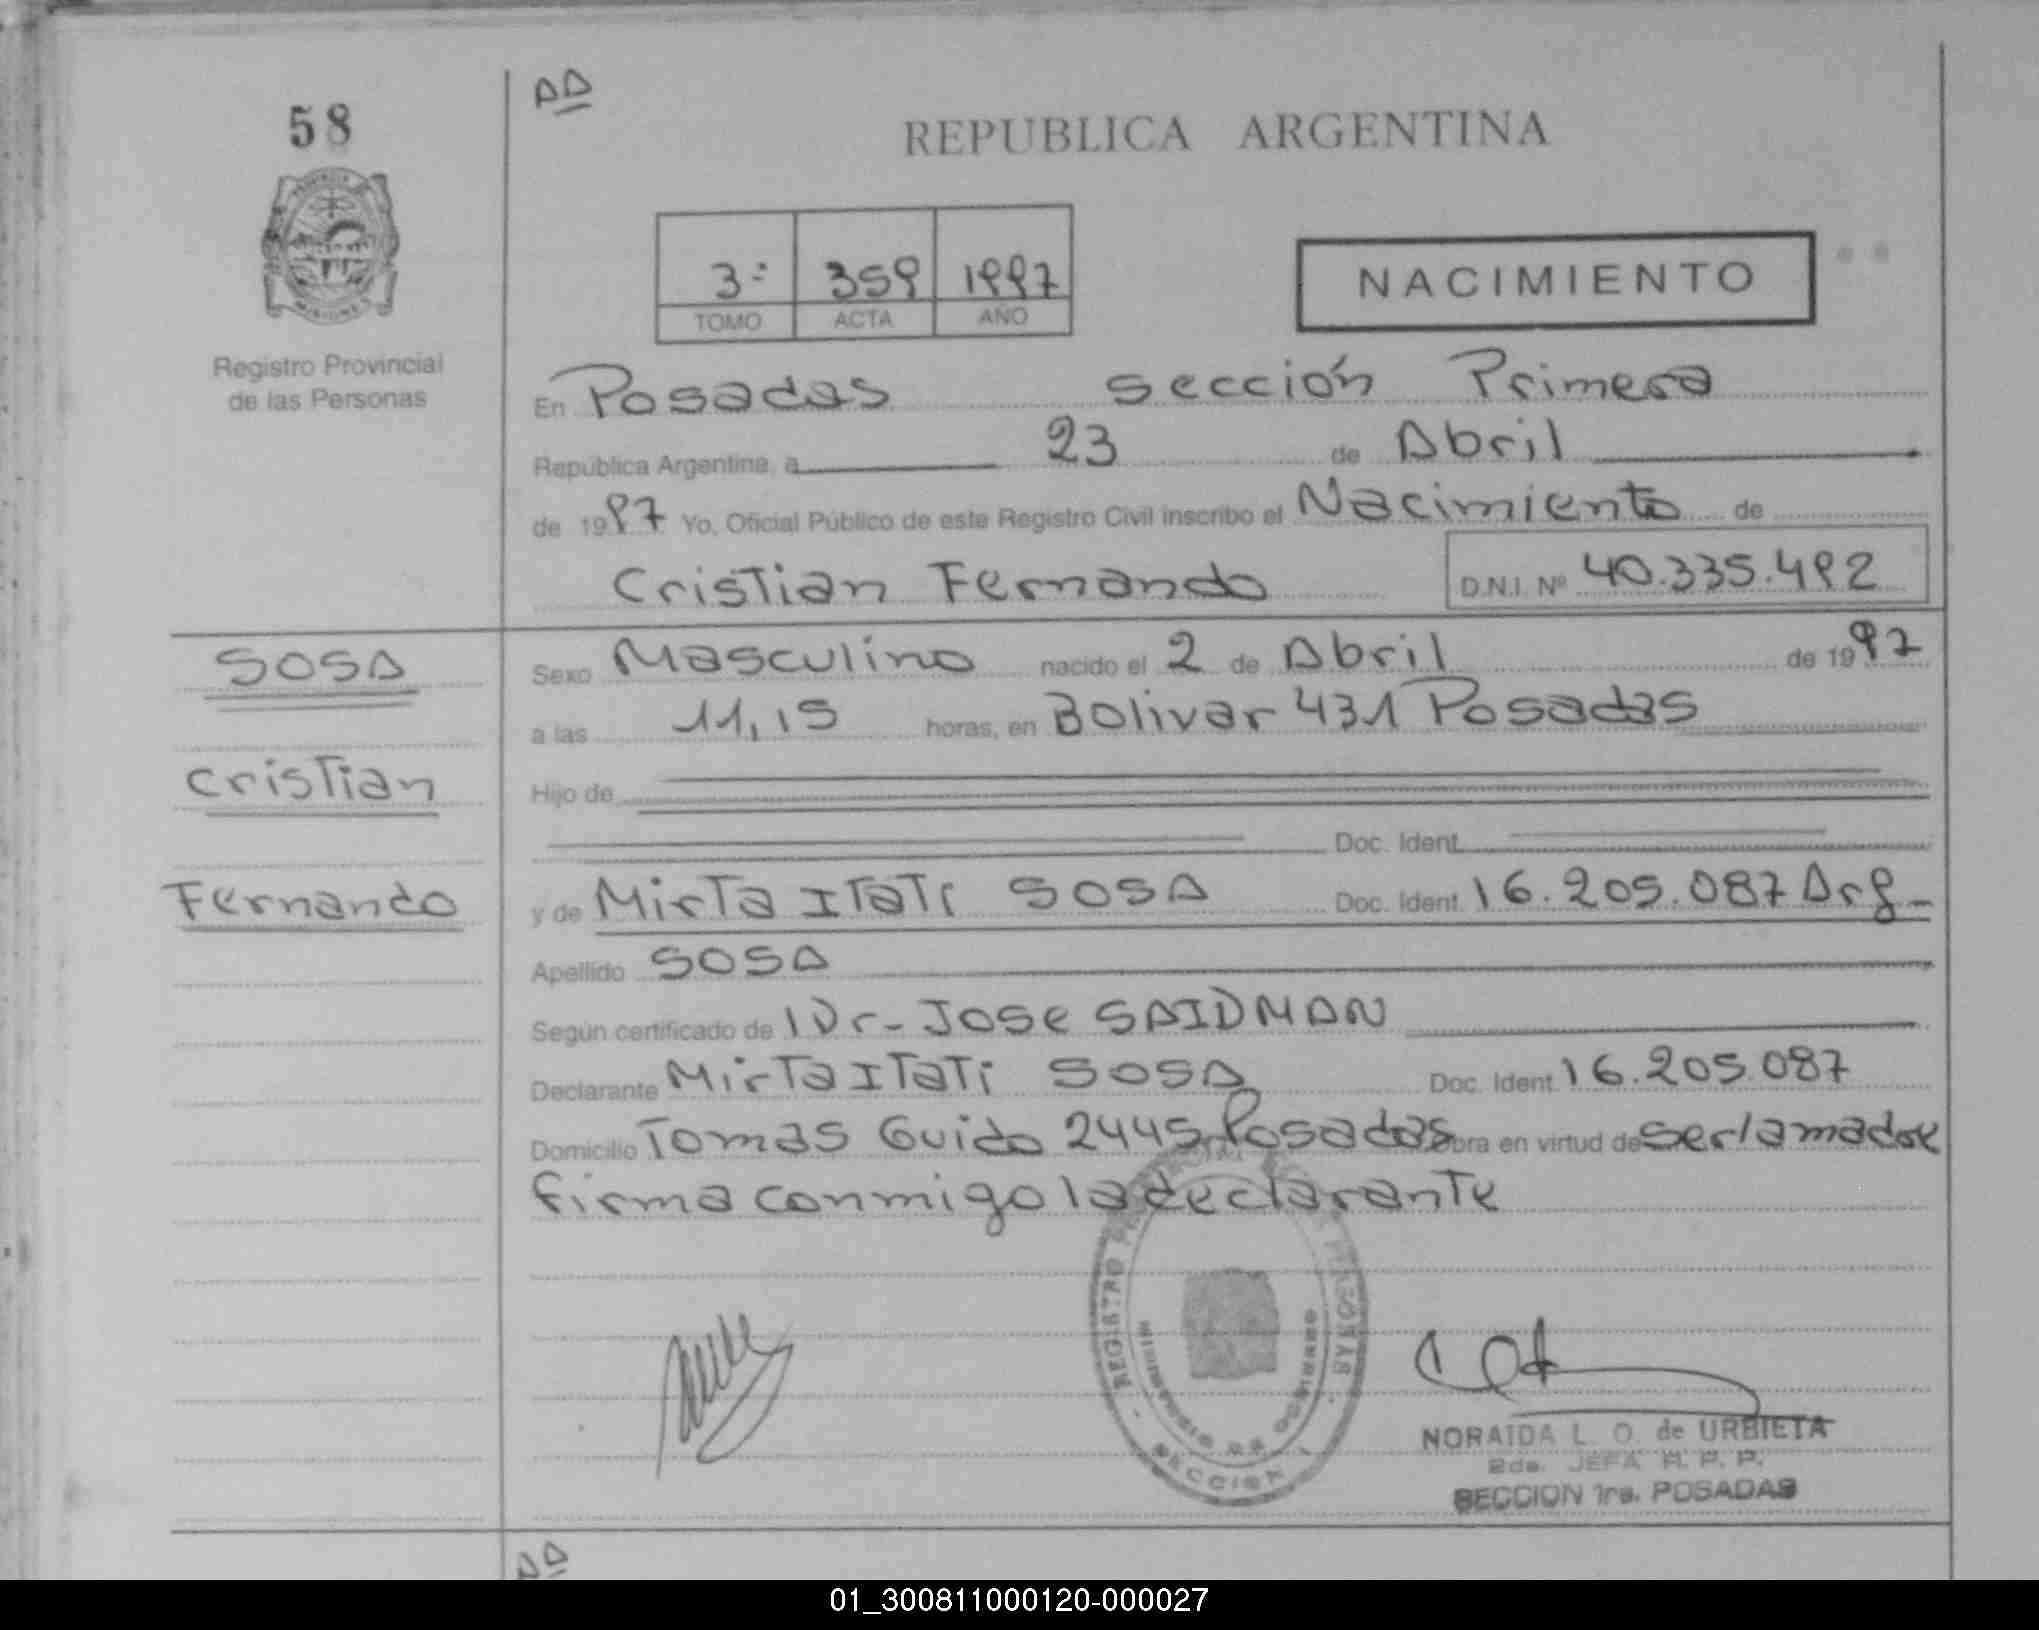 58
AA
REPUBLICA ARGENTINA
3º 359 1997
TOMO ACTA AÑO
NACIMIENTO
Registro Provincial
de las Personas
En Posadas sección Primera
República Argentina, a 23 de Abril
de 1997 Yo, Oficial Público de este Registro Civil inscribo el Nacimiento de
Cristian Fernando D.N.I. Nº 40.335.492
SOSA
Cristian
Fernando
Sexo Masculino nacido el 2 de Abril de 1997
a las 11,15 horas, en Bolivar 431 Posadas
Hijo de
Doc. Ident.
y de Mirta Itatí SOSA Doc. Ident. 16.205.087 Arg
Apellido SOSA
Según certificado de Dr- Jose SAIDMAN
Declarante Mirta Itatí SOSA Doc. Ident. 16.205.087
Domicilio Tomas Guido 2445 Posadas obra en virtud de ser la madre
firma conmigo la declarante
REGISTRO PERSONAS
MINISTERIO DE GOBIERNO
SECCION 1
NORAIDA L. O. de URBIETA
2da. JEFA R. P. P.
SECCION 1ra. POSADAS
AA
01_300811000120-000027